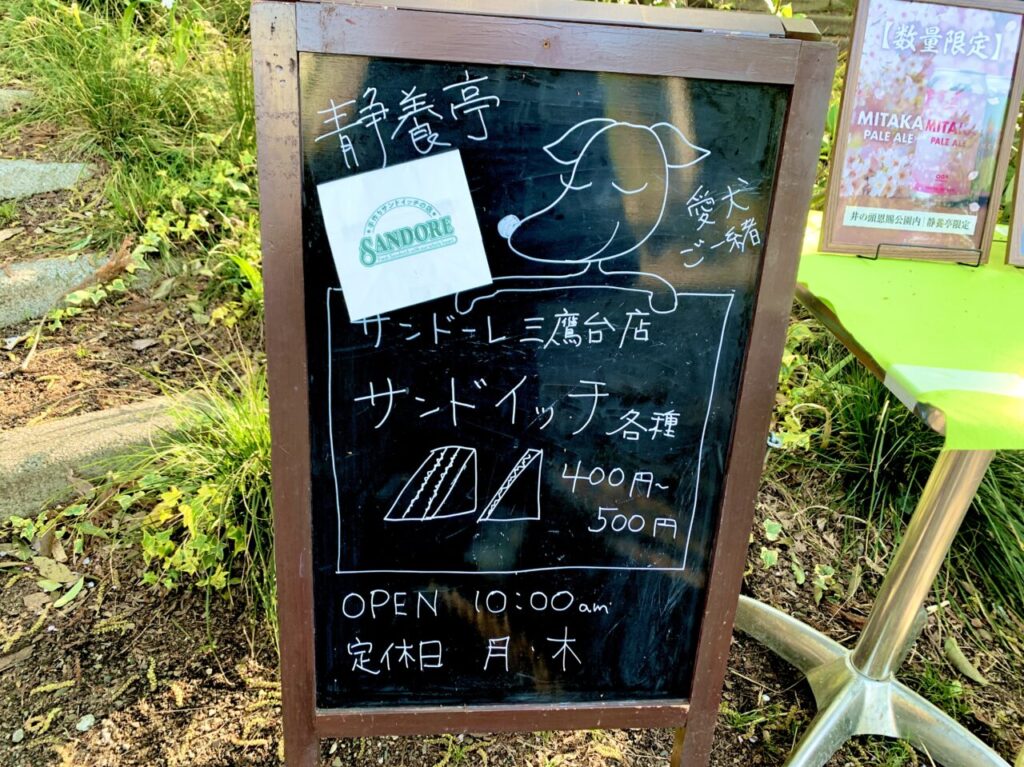 静養亭
手作りサンドイッチの店
SANDORE
愛犬
ご一緒
サンドーレ三鷹台店
サンドイッチ各種
400円~
500円
OPEN 10:00am
定休日 月・木
【数量限定】
MITAKA
PALE ALE
MITA
PALE ALE
井の頭恩賜公園内「静養亭限定